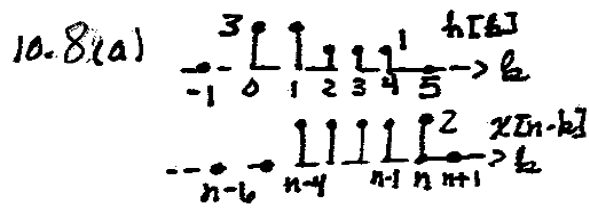 10.8(a) 3 1 h[k]
-1 0 1 2 3 4 5 k
2 x[n-k]
n-6 n-4 n-1 n n+1 k